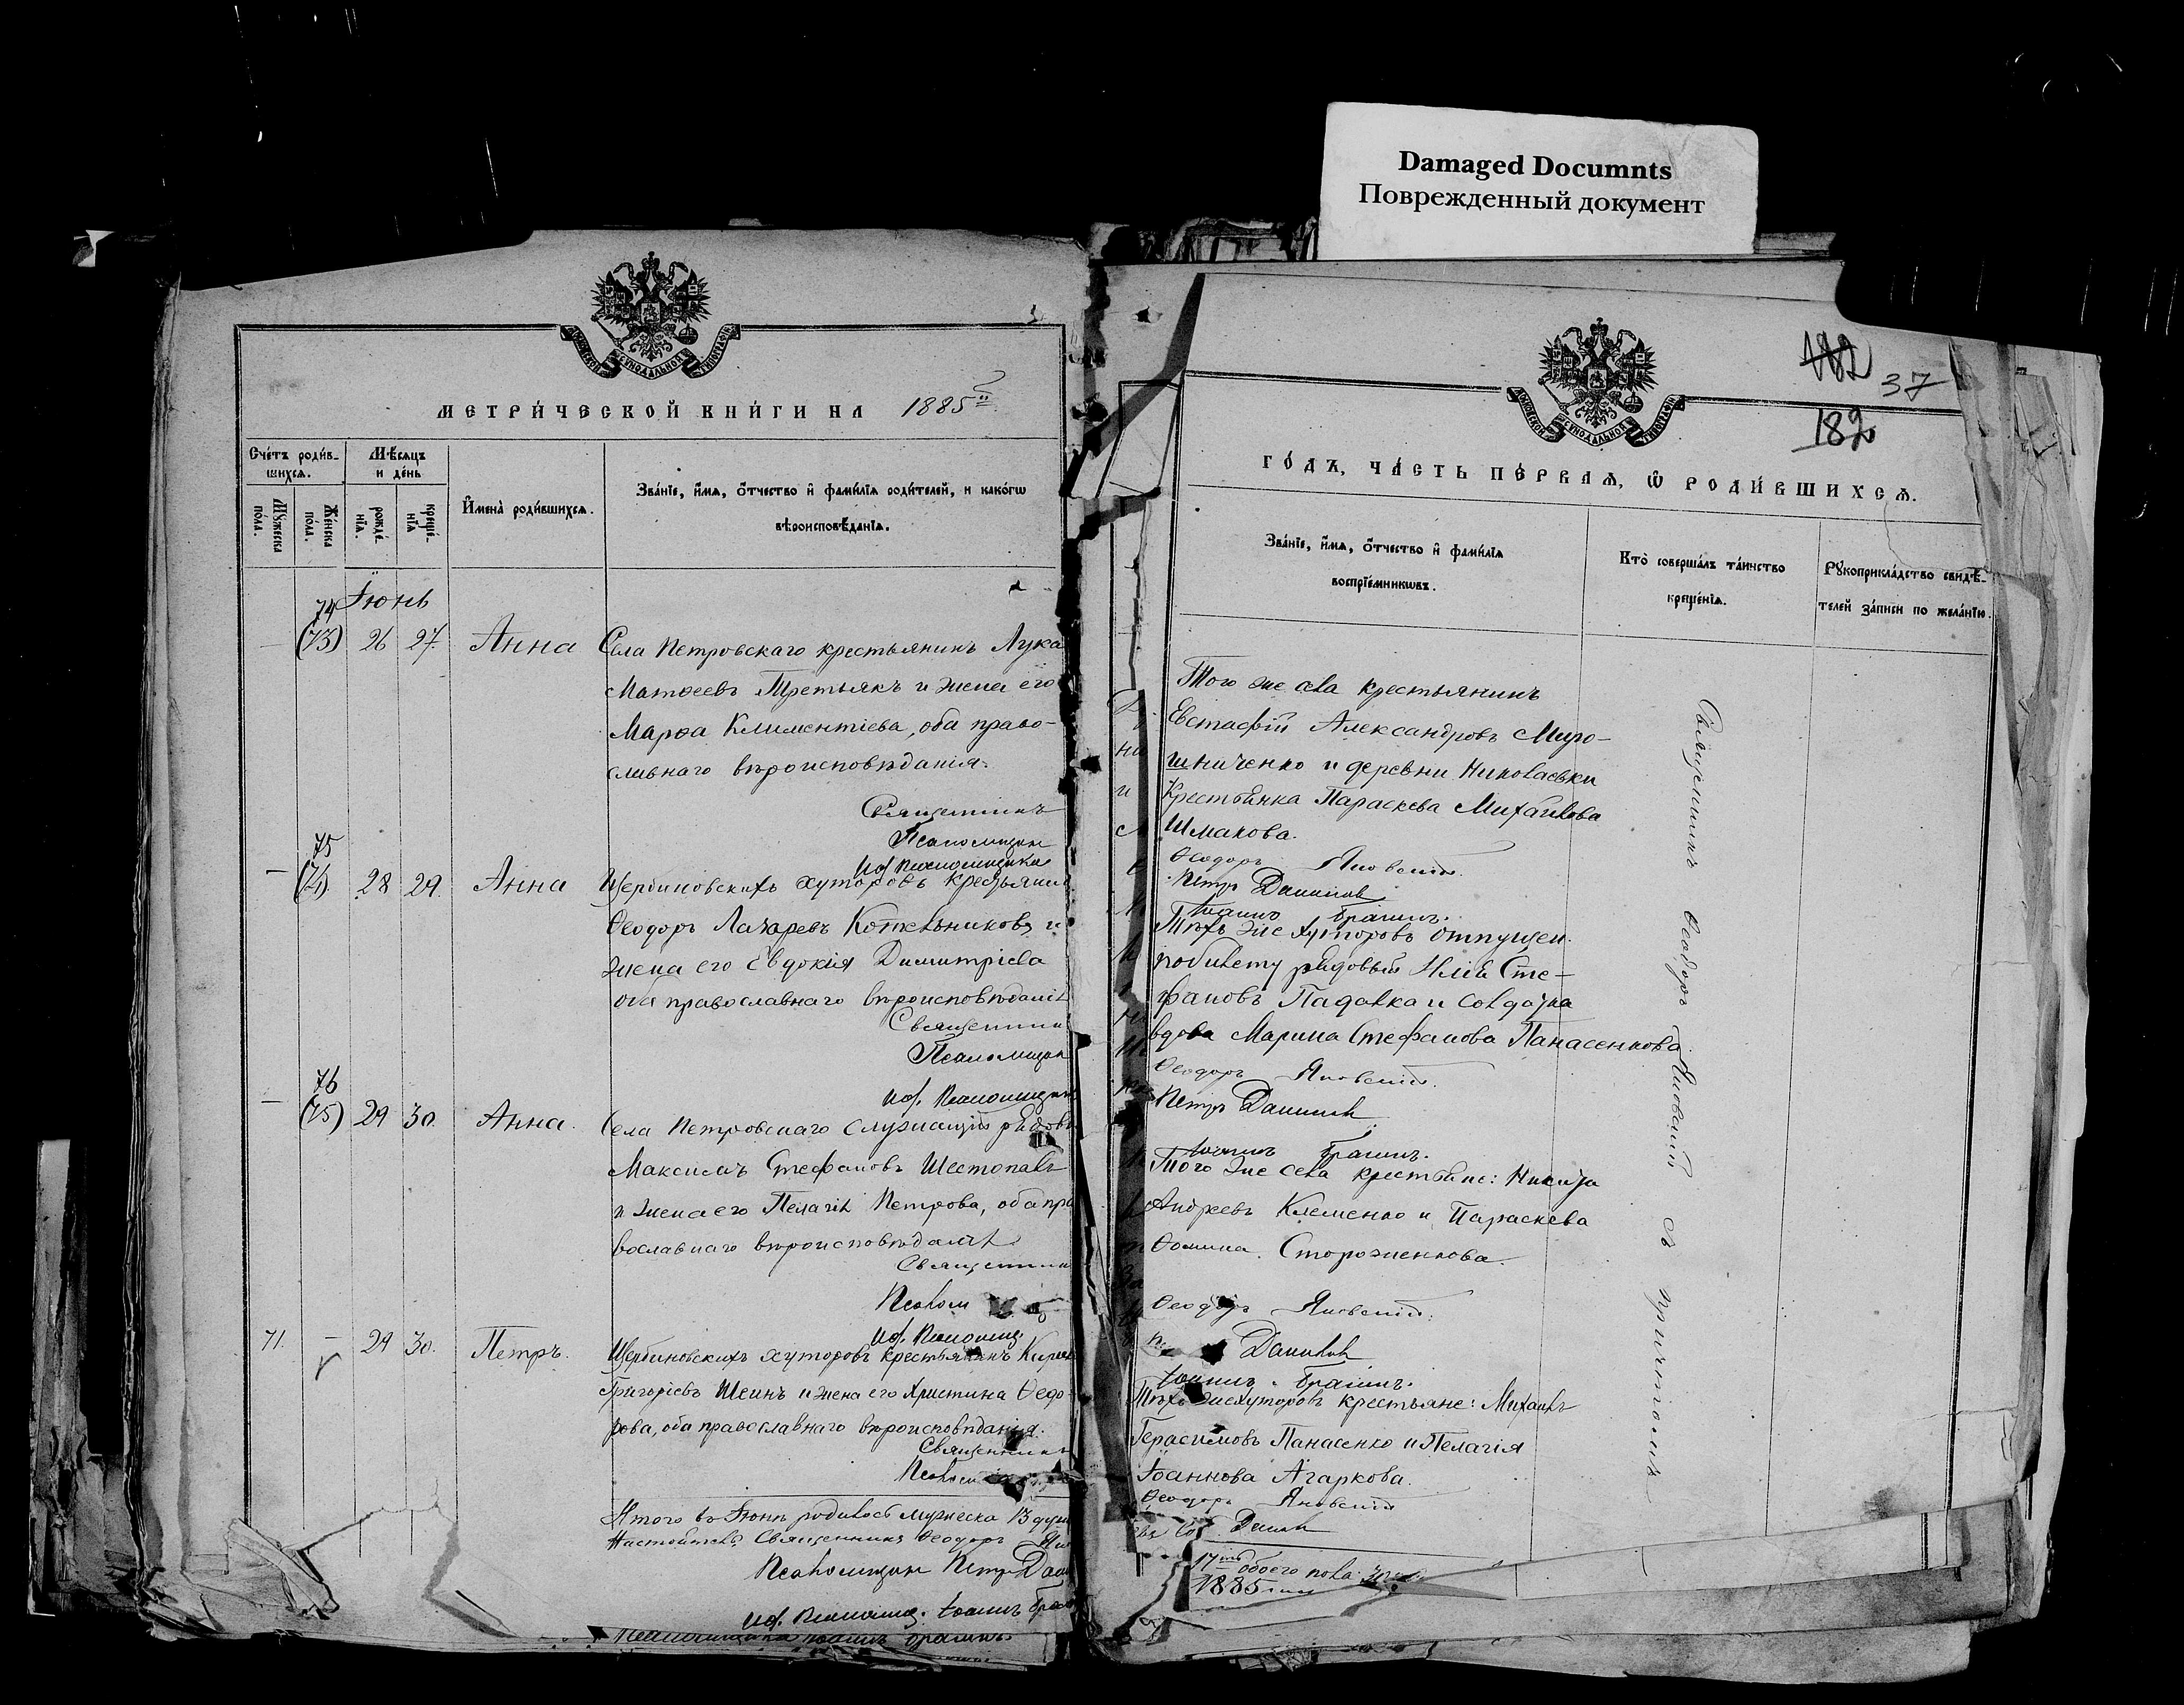 Damaged Documnts
Поврежденный документ
МЕТРИ́ЧЕСКОЙ КНИ́ГИ НА 1885й
Сче́тъ роди́в-
шихся.
Мѣ́сяцъ
и де́нь
Мꙋ́жеска
по́ла.
Же́нска
по́ла.
рожде́-
нїѧ.
креще́-
нїѧ
И҆мена̀ роди́вшихсѧ.
Зва́нїе, и҆́мѧ, ѻ҆́тчество и҆ фами́лїѧ роди́телей, и како́гѡ
вѣроисповѣ́данїѧ.
Іюнь
74
(73) 26 27. Анна Села Петровскаго крестьянинъ Лука
Матѳеевъ Третьякъ и жена его
Марѳа Климентіева, оба право-
славнаго вѣроисповѣданія.
Священникъ
Псаломщик
Иоf. Псаломщика
75
(74) 28 29. Анна Щербиновскихъ хуторовъ крестьянин
Ѳеодоръ Лазаревъ Котельниковъ и
жена его Евдокія Димитріева
оба православнаго вѣроисповѣданія
Священник
Псаломщик
76
(75) 29 30. Анна. Села Петровскаго служащій рядов
Максимъ Стефановъ Шестопалъ
и жена его Пелагія Петрова, оба пра
вославнаго вѣроисповѣданія
Священник
Псалом
71. – 29 30. Петръ. Щербиновскихъ хуторовъ крестьянинъ
Григоріевъ Шеинъ и жена его Христина Ѳедо
рова, оба православнаго вѣроисповѣданія.
Священникъ
Псалом
Итого въ Іюнѣ родилось мужеска 13 душ
Священникъ Ѳеодоръ
Псаломщик Петръ
182
37
182
ГО́ДЪ, ЧА́СТЬ ПЕ́РВАѦ, Ѡ҆ РОДИ́ВШИХСѦ.
Зва́нїе, и҆́мѧ, ѻ҆́тчество и҆ фами́лїѧ
воспрїе́мникѡвъ.
Кто̀ соверша́лъ та́инство
креще́нїѧ.
Рꙋкоприкла́дство свидѣ́-
телей за́писи по жела́нїю.
Того же села крестьянинъ
Евстафій Александровъ Миро-
шниченко и деревни Николаевки
Крестьянка Параскева Михайлова
Шмакова.
Ѳеодоръ Яновскій.
Петръ Данилов
Іоаннъ
Тѣхъ же хуторовъ отпущен.
по билету рядовый Илія Сте-
фановъ Падалка и солдатка
вдова Марина Стефанова Панасенкова
Ѳеодоръ Яновскій.
Петръ Данилов
Іоаннъ
Того же села крестьяне: Никита
Андреевъ Клеменко и Параскева
Ѳомина Стороженкова.
Ѳеодоръ Яновскій.
Данилов
Іоаннъ
Тѣхъ же хуторовъ крестьяне: Михаилъ
Герасимовъ Панасенко и Пелагія
Іоаннова Агаркова.
Ѳеодоръ Яновскій
17 обоего пола 30
1885
Священникъ Ѳеодоръ Яновскій съ причтомъ